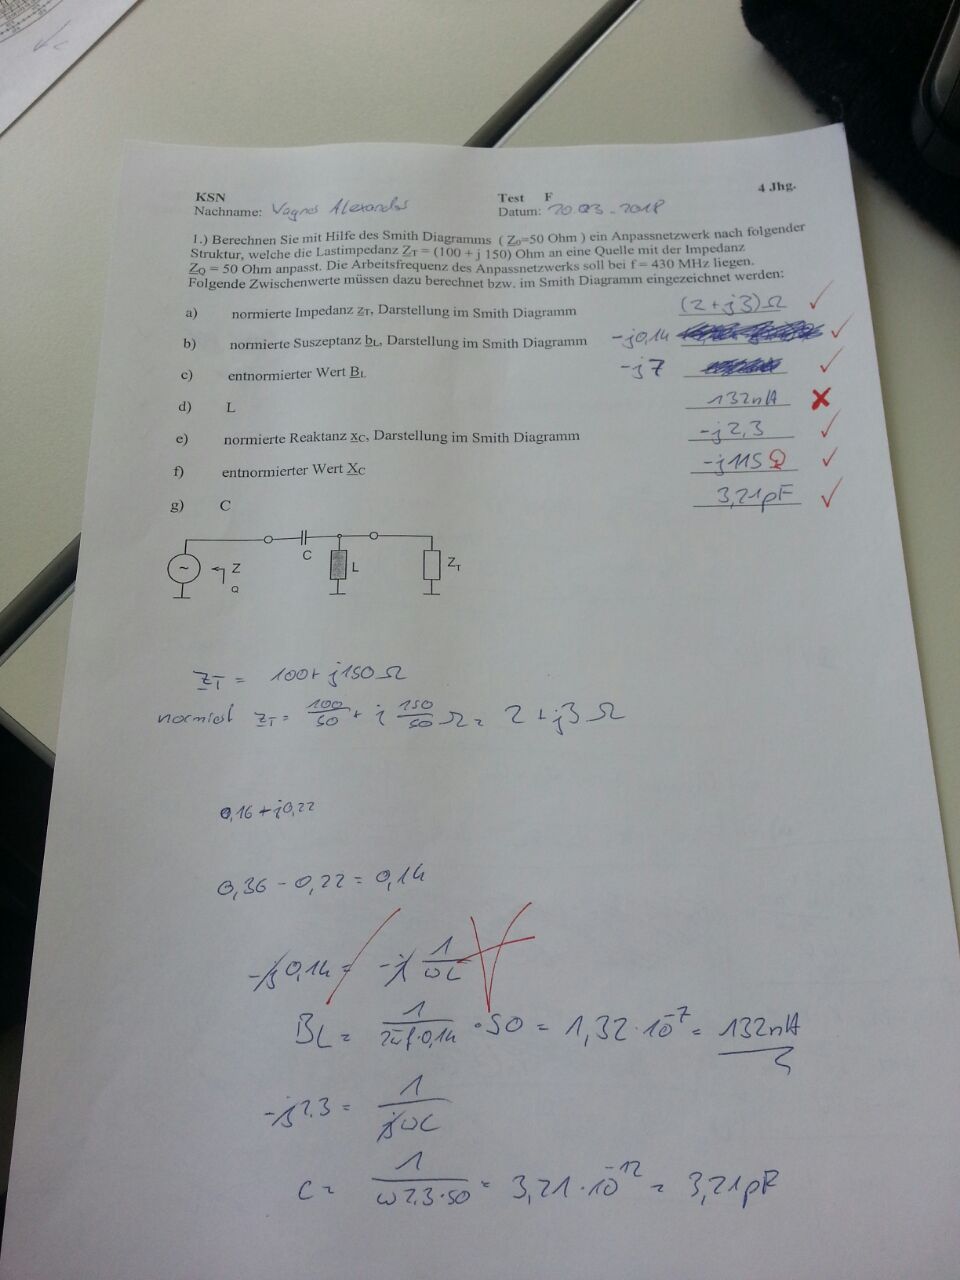 KSN Test F 4 Jhg.
Nachname: Wagner Alexander Datum: 20.03.2018
1.) Berechnen Sie mit Hilfe des Smith Diagramms ( Z0=50 Ohm ) ein Anpassnetzwerk nach folgender
Struktur, welche die Lastimpedanz ZT = (100 + j 150) Ohm an eine Quelle mit der Impedanz
ZQ = 50 Ohm anpasst. Die Arbeitsfrequenz des Anpassnetzwerks soll bei f = 430 MHz liegen.
Folgende Zwischenwerte müssen dazu berechnet bzw. im Smith Diagramm eingezeichnet werden:
a) normierte Impedanz zT, Darstellung im Smith Diagramm (2+j3)Ω
b) normierte Suszeptanz bL, Darstellung im Smith Diagramm -j0,14
c) entnormierter Wert BL -j7
d) L 132nH
e) normierte Reaktanz xC, Darstellung im Smith Diagramm -j2,3
f) entnormierter Wert XC -j115Ω
g) C 3,21pF
~ Z Q C L ZT
ZT = 100+j150Ω
normiert zT = 100/50 + j 150/50 Ω = 2+j3Ω
0,16+j0,22
0,36 - 0,22 = 0,14
-j0,14 = -j 1/ωL
BL = 1/2πf·0,14 · 50 = 1,32·10^-7 = 132nH
-j2,3 = 1/jωC
C = 1/ω2,3·50 = 3,21·10^-12 = 3,21pF